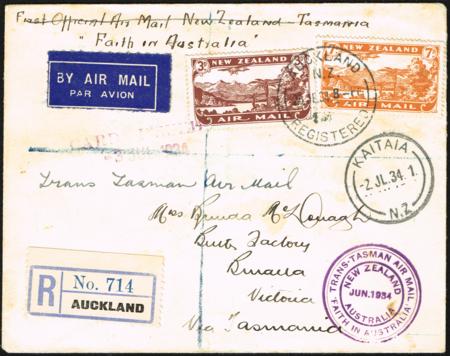 First Official Air Mail New Zealand - Tasmania
"Faith in Australia"
BY AIR MAIL
PAR AVION
3D NEW ZEALAND
AIR MAIL
7D NEW ZEALAND
AIR MAIL
AUCKLAND
N.Z.
REGISTERED
KAITAIA
-2 JL. 34. 1
N.Z
Trans Tasman Air Mail
Miss
Butter Factory
Benalla
Victoria
Via Tasmania
R No. 714
AUCKLAND
TRANS-TASMAN AIR MAIL
NEW ZEALAND
JUN. 1934
AUSTRALIA
"FAITH IN AUSTRALIA"